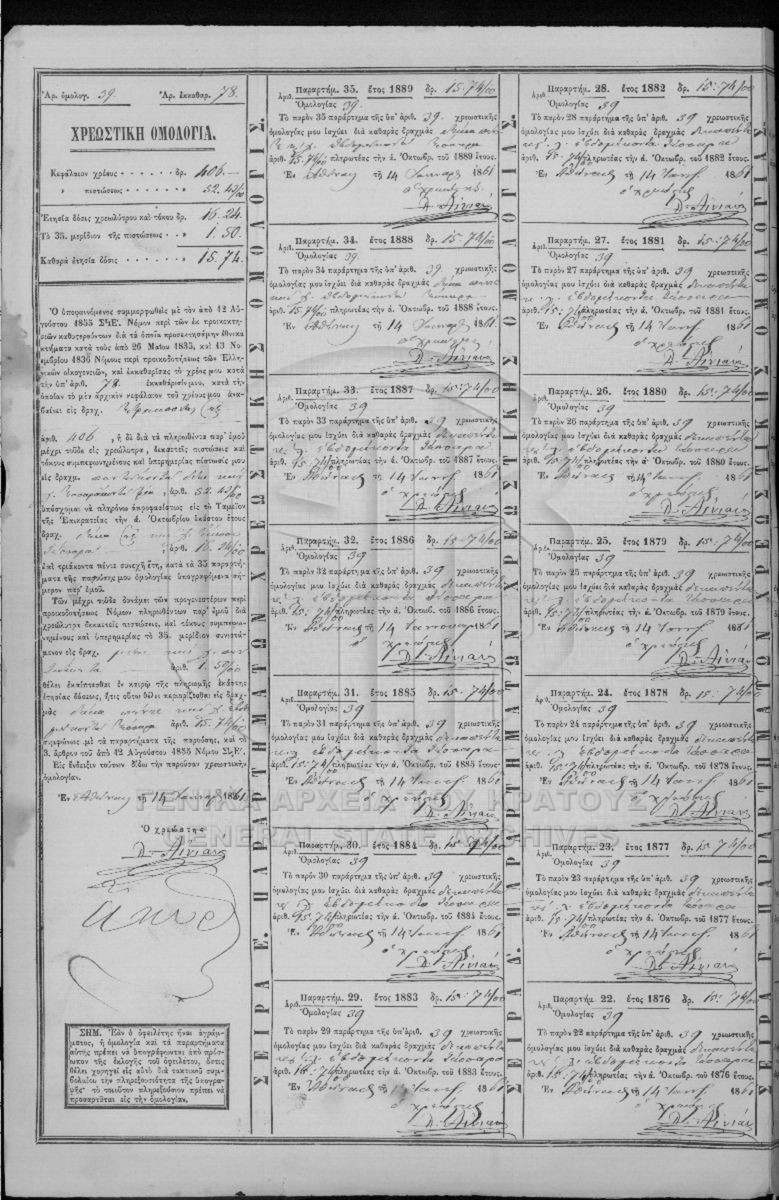 Ἀρ. ὁμολογ. 39. Ἀρ. ἐκκαθαρ. 78.
ΧΡΕΩΣΤΙΚΗ ΟΜΟΛΟΓΙΑ.
Κεφάλαιον χρέους δρ. 406.
» πιστώσεως » 52. 42/00
Ἐτησία δόσις χρεωλύτρου καὶ τόκου δρ. 16. 24.
Τὸ 35. μερίδιον τῆς πιστώσεως » 1. 50.
Καθαρὰ ἐτησία δόσις 15. 74.
Ὁ ὑποφαινόμενος συμμορφωθεὶς μὲ τὸν ἀπὸ 12 Αὐ-
γούστου 1855 ΣϞΕ΄. Νόμον περὶ τῶν ἐκ προικοκτη-
ριῶν καθυστερούντων διὰ τὰ ὁποῖα προσεκτησάμην ἐθνικὰ
κτήματα κατὰ τοὺς ἀπὸ 26 Μαΐου 1835, καὶ 13 Νο-
εμβρίου 1836 Νόμους περὶ προικοδοτήσεως τῶν Ἑλλη-
νικῶν οἰκογενειῶν, καὶ ἐκκαθαρίσας τὸ χρέος μου κατὰ
τὴν ὑπ' ἀριθ. 78. ἐκκαθάρισίν μου, κατὰ τὴν
ὁποίαν τὸ μὲν ἀρχικὸν κεφάλαιον τοῦ χρέους μου ἀνα-
βαίνει εἰς δραχ. τετρακοσίας ἓξ
ἀριθ. 406, ἡ δὲ διὰ τὰ πληρωθέντα παρ' ἐμοῦ
μέχρι τοῦδε εἰς χρεώλυτρα, δεκαετεῖς πιστώσεις καὶ
τόκους συμπεφωνημένους καὶ ὑπερημερίας πίστωσίς μου
εἰς δραχμ. πεντήκοντα δύο καὶ
λ. τεσσαράκοντα δύο, ἀριθ. 52. 42/00
ὑπόσχομαι νὰ πληρόνω ἀπροφασίστως εἰς τὸ Ταμεῖον
τῆς Ἐπικρατείας τὴν ά. Ὀκτωβρίου ἑκάστου ἔτους
δραχ. δέκα ἓξ καὶ λ. εἴκοσι
τέσσαρα ἀριθ. 16. 24/00
ἐπὶ τριάκοντα πέντε συνεχῆ ἔτη, κατὰ τὰ 35 παραρτή-
ματα τῆς παρούσης μου ὁμολογίας ὑπογραφόμενα σή-
μερον παρ' ἐμοῦ.
Τῶν μέχρι τοῦδε δυνάμει τῶν προγενεστέρων περὶ
προικοδοτήσεως Νόμων πληρωθέντων παρ' ἐμοῦ διὰ
χρεώλυτρα δεκαετεῖς πιστώσεις, καὶ τόκους συμπεφω-
νημένους καὶ ὑπερημερίας τὸ 35. μερίδιον συνιστά-
μενον εἰς δραχ. μίαν καὶ λ. πεν-
τήκοντα ἀριθ. 1. 50/00
θέλει ἐκπίπτεσθαι ἐν καιρῷ τῆς πληρωμῆς ἑκάστης
ἐτησίας δόσεως, ἥτις οὕτω θέλει περιορίζεσθαι εἰς δραχ-
μὰς δέκα πέντε καὶ λ. ἑβδο-
μήκοντα τέσσαρα ἀριθ. 15. 74/00
συμφώνως μὲ τὰ παραρτήματα τῆς παρούσης, καὶ τὸ
3. ἄρθρον τοῦ ἀπὸ 12 Αὐγούστου 1855 Νόμου ΣϞΕ΄.
Εἰς ἔνδειξιν τούτων δίδω τὴν παροῦσαν χρεωστικὴν
ὁμολογίαν.
Ἐν Ἀθήναις τῇ 14 Ἰανουαρ 1861
Ὁ χρεώστης
Δ. Αἰνιάν
ΣΗΜ. Ἐὰν ὁ ὀφειλέτης ἦναι ἀγράμ-
ματος, ἡ ὁμολογία καὶ τὰ παραρτήματα
αὐτῆς πρέπει νὰ ὑπογράφωνται ἀπὸ πρόσω-
πον τῆς ἐκλογῆς τοῦ ὀφειλέτου, ὅστις
θέλει χορηγεῖ εἰς αὐτὸ διὰ τακτικοῦ συμ-
βολαίου τὴν πληρεξουσιότητα τῆς ὑπογρα-
φῆς· τὸ τοιοῦτον πληρεξούσιον πρέπει νὰ
προσαρτᾶται εἰς τὴν ὁμολογίαν.
ΣΕΙΡΑ Ε. ΠΑΡΑΡΤΗΜΑΤΩΝ ΧΡΕΩΣΤΙΚΗΣ ΟΜΟΛΟΓΙΑΣ.
Παραρτήμ. 35. ἔτος 1889 δρ. 15. 74/00
Ἀριθ. Ὁμολογίας 39.
Τὸ παρὸν 35 παράρτημα τῆς ὑπ' ἀριθ. 39. χρεωστικῆς
ὁμολογίας μου ἰσχύει διὰ καθαρὰς δραχμὰς δέκα πέν-
τε κ λ. ἑβδομήκοντα τέσσαρα
ἀριθ. 15. 74/00 πληρωτέας τὴν ά. Ὀκτωβρ. τοῦ 1889 ἔτους
Ἐν Ἀθήναις τῇ 14 Ἰανουαρ 1861
ὁ χρεώστης
Δ. Αἰνιάν
Παραρτήμ. 34. ἔτος 1888 δρ. 15. 74/00
Ἀριθ. Ὁμολογίας 39.
Τὸ παρὸν 34 παράρτημα τῆς ὑπ' ἀριθ. 39. χρεωστικῆς
ὁμολογίας μου ἰσχύει διὰ καθαρὰς δραχμὰς δέκα πέντε
καὶ λ. ἑβδομήκοντα τέσσαρα
ἀριθ. 15. 74/00 πληρωτέας τὴν ά. Ὀκτωβρ. τοῦ 1888 ἔτους
Ἐν Ἀθήναις τῇ 14 Ἰανουαρ 1861
ὁ χρεώστης
Δ. Αἰνιάν
Παραρτήμ. 33. ἔτος 1887 δρ. 15. 74/00
Ἀριθ. Ὁμολογίας 39
Τὸ παρὸν 33 παράρτημα τῆς ὑπ' ἀριθ. 39 χρεωστικῆς
ὁμολογίας μου ἰσχύει διὰ καθαρὰς δραχμὰς δεκαπέντε
κ λ. ἑβδομήκοντα τέσσαρα
ἀριθ. 15. 74/00 πληρωτέας τὴν ά. Ὀκτωβρ. τοῦ 1887 ἔτους
Ἐν Ἀθήναις τῇ 14 Ἰανουαρ 1861
ὁ χρεώστης
Δ. Αἰνιάν
Παραρτήμ. 32. ἔτος 1886 δρ. 15. 74/00
Ἀριθ. Ὁμολογίας 39
Τὸ παρὸν 32 παράρτημα τῆς ὑπ' ἀριθ. 39 χρεωστικῆς
ὁμολογίας μου ἰσχύει διὰ καθαρὰς δραχμὰς δεκαπέντε
κ λ. ἑβδομήκοντα τέσσαρα
ἀριθ. 15. 74/00 πληρωτέας τὴν ά. Ὀκτωβ. τοῦ 1886 ἔτους
Ἐν Ἀθήναις τῇ 14 Ἰανουαρ 1861
ὁ χρεώστης
Δ. Αἰνιάν
Παραρτήμ. 31. ἔτος 1885 δρ. 15. 74/00
Ἀριθ. Ὁμολογίας 39
Τὸ παρὸν 31 παράρτημα τῆς ὑπ' ἀριθ. 39 χρεωστικῆς
ὁμολογίας μου ἰσχύει διὰ καθαρὰς δραχμὰς δεκαπέντε
κ λ. ἑβδομήκοντα τέσσαρα
ἀριθ. 15. 74/00 πληρωτέας τὴν ά. Ὀκτωβρ. τοῦ 1885 ἔτους
Ἐν Ἀθήναις τῇ 14 Ἰανουαρ 1861
ὁ χρεώστης
Δ. Αἰνιάν
Παραρτήμ. 30. ἔτος 1884 δρ. 15. 74/00
Ἀριθ. Ὁμολογίας 39
Τὸ παρὸν 30 παράρτημα τῆς ὑπ' ἀριθ. 39 χρεωστικῆς
ὁμολογίας μου ἰσχύει διὰ καθαρὰς δραχμὰς δεκαπέντε
κ λ. ἑβδομήκοντα τέσσαρα
ἀριθ. 15. 74/00 πληρωτέας τὴν ά. Ὀκτωβρ. τοῦ 1884 ἔτους.
Ἐν Ἀθήναις τῇ 14 Ἰανουαρ 1861
ὁ χρεώστης
Δ. Αἰνιάν
Παραρτήμ. 29. ἔτος 1883 δρ. 15. 74/00
Ἀριθ. Ὁμολογίας 39
Τὸ παρὸν 29 παράρτημα τῆς ὑπ' ἀριθ. 39 χρεωστικῆς
ὁμολογίας μου ἰσχύει διὰ καθαρὰς δραχμὰς δεκαπέντε
κ λ. ἑβδομήκοντα τέσσαρα
ἀριθ. 15. 74/00 πληρωτέας τὴν ά. Ὀκτωβρ. τοῦ 1883 ἔτους
Ἐν Ἀθήναις τῇ 14 Ἰανουαρ 1861
ὁ χρεώστης
Δ. Αἰνιάν
ΣΕΙΡΑ Δ. ΠΑΡΑΡΤΗΜΑΤΩΝ ΧΡΕΩΣΤΙΚΗΣ ΟΜΟΛΟΓΙΑΣ.
Παραρτήμ. 28. ἔτος 1882 δρ. 15. 74/00
Ἀριθ. Ὁμολογίας 39
Τὸ παρὸν 28 παράρτημα τῆς ὑπ' ἀριθ. 39 χρεωστικῆς
ὁμολογίας μου ἰσχύει διὰ καθαρὰς δραχμὰς δεκαπέντε
κ λ. ἑβδομήκοντα τέσσαρα
ἀριθ. 15. 74/00 πληρωτέας τὴν ά. Ὀκτωβρ. τοῦ 1882 ἔτους.
Ἐν Ἀθήναις τῇ 14 Ἰανουαρ 1861
ὁ χρεώστης
Δ. Αἰνιάν
Παραρτήμ. 27. ἔτος 1881 δρ. 15. 74/00
Ἀριθ. Ὁμολογίας 39
Τὸ παρὸν 27 παράρτημα τῆς ὑπ' ἀριθ. 39 χρεωστικῆς
ὁμολογίας μου ἰσχύει διὰ καθαρὰς δραχμὰς δεκαπέντε
κ λ. ἑβδομήκοντα τέσσαρα
ἀριθ. 15. 74/00 πληρωτέας τὴν ά. Ὀκτωβρ. τοῦ 1881 ἔτους
Ἐν Ἀθήναις τῇ 14 Ἰανουαρ 1861
ὁ χρεώστης
Δ. Αἰνιάν
Παραρτήμ. 26. ἔτος 1880 δρ. 15. 74/00
Ἀριθ. Ὁμολογίας 39
Τὸ παρὸν 26 παράρτημα τῆς ὑπ' ἀριθ. 39 χρεωστικῆς
ὁμολογίας μου ἰσχύει διὰ καθαρὰς δραχμὰς δεκαπέντε
κ λ. ἑβδομήκοντα τέσσαρα
ἀριθ. 15. 74/00 πληρωτέας τὴν ά. Ὀκτωβρ. τοῦ 1880 ἔτους
Ἐν Ἀθήναις τῇ 14 Ἰανουαρ 1861
ὁ χρεώστης
Δ. Αἰνιάν
Παραρτήμ. 25. ἔτος 1879 δρ. 15. 74/00
Ἀριθ. Ὁμολογίας 39
Τὸ παρὸν 25 παράρτημα τῆς ὑπ' ἀριθ. 39 χρεωστικῆς
ὁμολογίας μου ἰσχύει διὰ καθαρὰς δραχμὰς δεκαπέντε
κ λ. ἑβδομήκοντα τέσσαρα
ἀριθ. 15. 74/00 πληρωτέας τὴν ά. Ὀκτωβρ. τοῦ 1879 ἔτους
Ἐν Ἀθήναις τῇ 14 Ἰανουαρ 1861
ὁ χρεώστης
Δ. Αἰνιάν
Παραρτήμ. 24. ἔτος 1878 δρ. 15. 74/00
Ἀριθ. Ὁμολογίας 39
Τὸ παρὸν 24 παράρτημα τῆς ὑπ' ἀριθ. 39 χρεωστικῆς
ὁμολογίας μου ἰσχύει διὰ καθαρὰς δραχμὰς δεκαπέντε
κ λ. ἑβδομήκοντα τέσσαρα
ἀριθ. 15. 74/00 πληρωτέας τὴν ά. Ὀκτωβρ. τοῦ 1878 ἔτους
Ἐν Ἀθήναις τῇ 14 Ἰανουαρ 1861
ὁ χρεώστης
Δ. Αἰνιάν
Παραρτήμ. 23. ἔτος 1877 δρ. 15. 74/00
Ἀριθ. Ὁμολογίας 39
Τὸ παρὸν 23 παράρτημα τῆς ὑπ' ἀριθ. 39 χρεωστικῆς
ὁμολογίας μου ἰσχύει διὰ καθαρὰς δραχμὰς δεκαπέντε
κ λ. ἑβδομήκοντα τέσσαρα
ἀριθ. 15. 74/00 πληρωτέας τὴν ά. Ὀκτωβρ. τοῦ 1877 ἔτους.
Ἐν Ἀθήναις τῇ 14 Ἰανουαρ 1861
ὁ χρεώστης
Δ. Αἰνιάν
Παραρτήμ. 22. ἔτος 1876 δρ. 15. 74/00
Ἀριθ. Ὁμολογίας 39
Τὸ παρὸν 22 παράρτημα τῆς ὑπ' ἀριθ. 39 χρεωστικῆς
ὁμολογίας μου ἰσχύει διὰ καθαρὰς δραχμὰς δεκαπέντε
κ λ. ἑβδομήκοντα τέσσαρα
ἀριθ. 15. 74/00 πληρωτέας τὴν ά. Ὀκτωβρ. τοῦ 1876 ἔτους
Ἐν Ἀθήναις τῇ 14 Ἰανουαρ 1861
ὁ χρεώστης
Δ. Αἰνιάν
ΓΕΝΙΚΑ ΑΡΧΕΙΑ ΤΟΥ ΚΡΑΤΟΥΣ
GENERAL STATE ARCHIVES